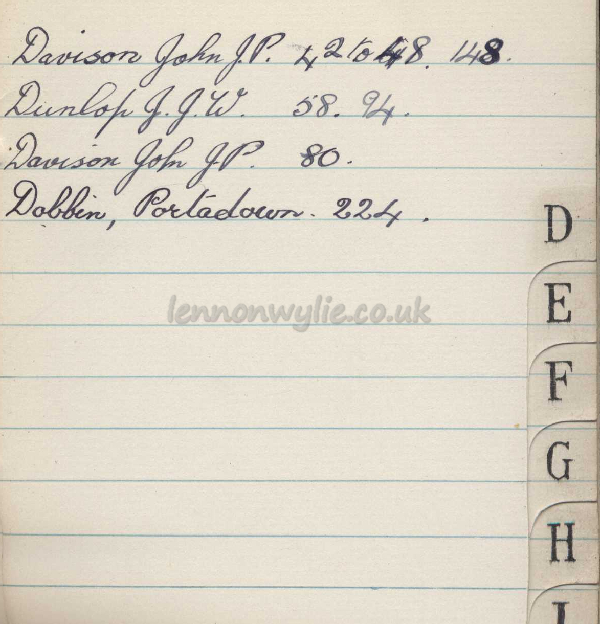 Davison John J.P. 42 to 48. 148.
Dunlop J. J. W. 58. 94.
Davison John J.P. 80.
Dobbin, Portadown. 224.
D
lennonwylie.co.uk
E
F
G
H
I